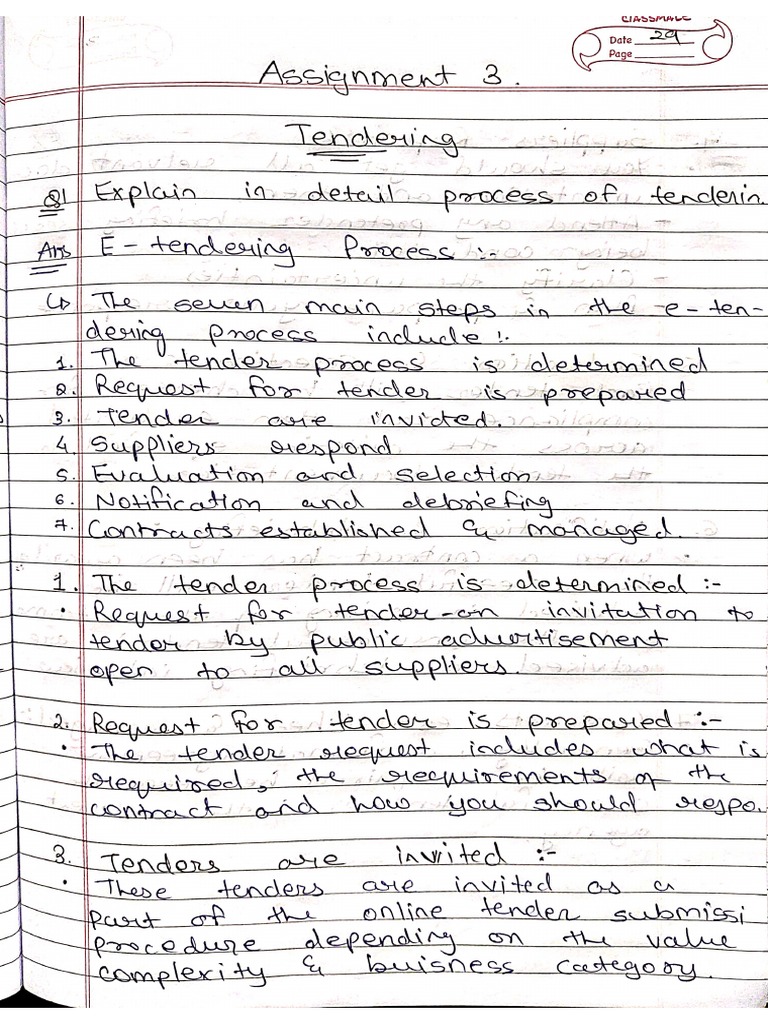 CLASSMATE
Date 29
Page
Assignment 3.
Tendering
Q1 Explain in detail process of tenderin
Ans E-tendering Process :-
↳ The seven main steps in the e-ten-
dering process include :-
1. The tender process is determined
2. Request for tender is prepared
3. Tender are invicted.
4. Suppliers respond
5. Evaluation and selection
6. Notification and debriefing
7. Contracts established & managed.
1. The tender process is determined :-
• Request for tender-an invitation to
tender by public advertisement
open to all suppliers.
2. Request for tender is prepared :-
• The tender request includes what is
required, the requirements of the
contract and how you should respo
3. Tenders are invited :-
• These tenders are invited as a
part of the online tender submissi
procedure depending on the value
complexity & buisness category.